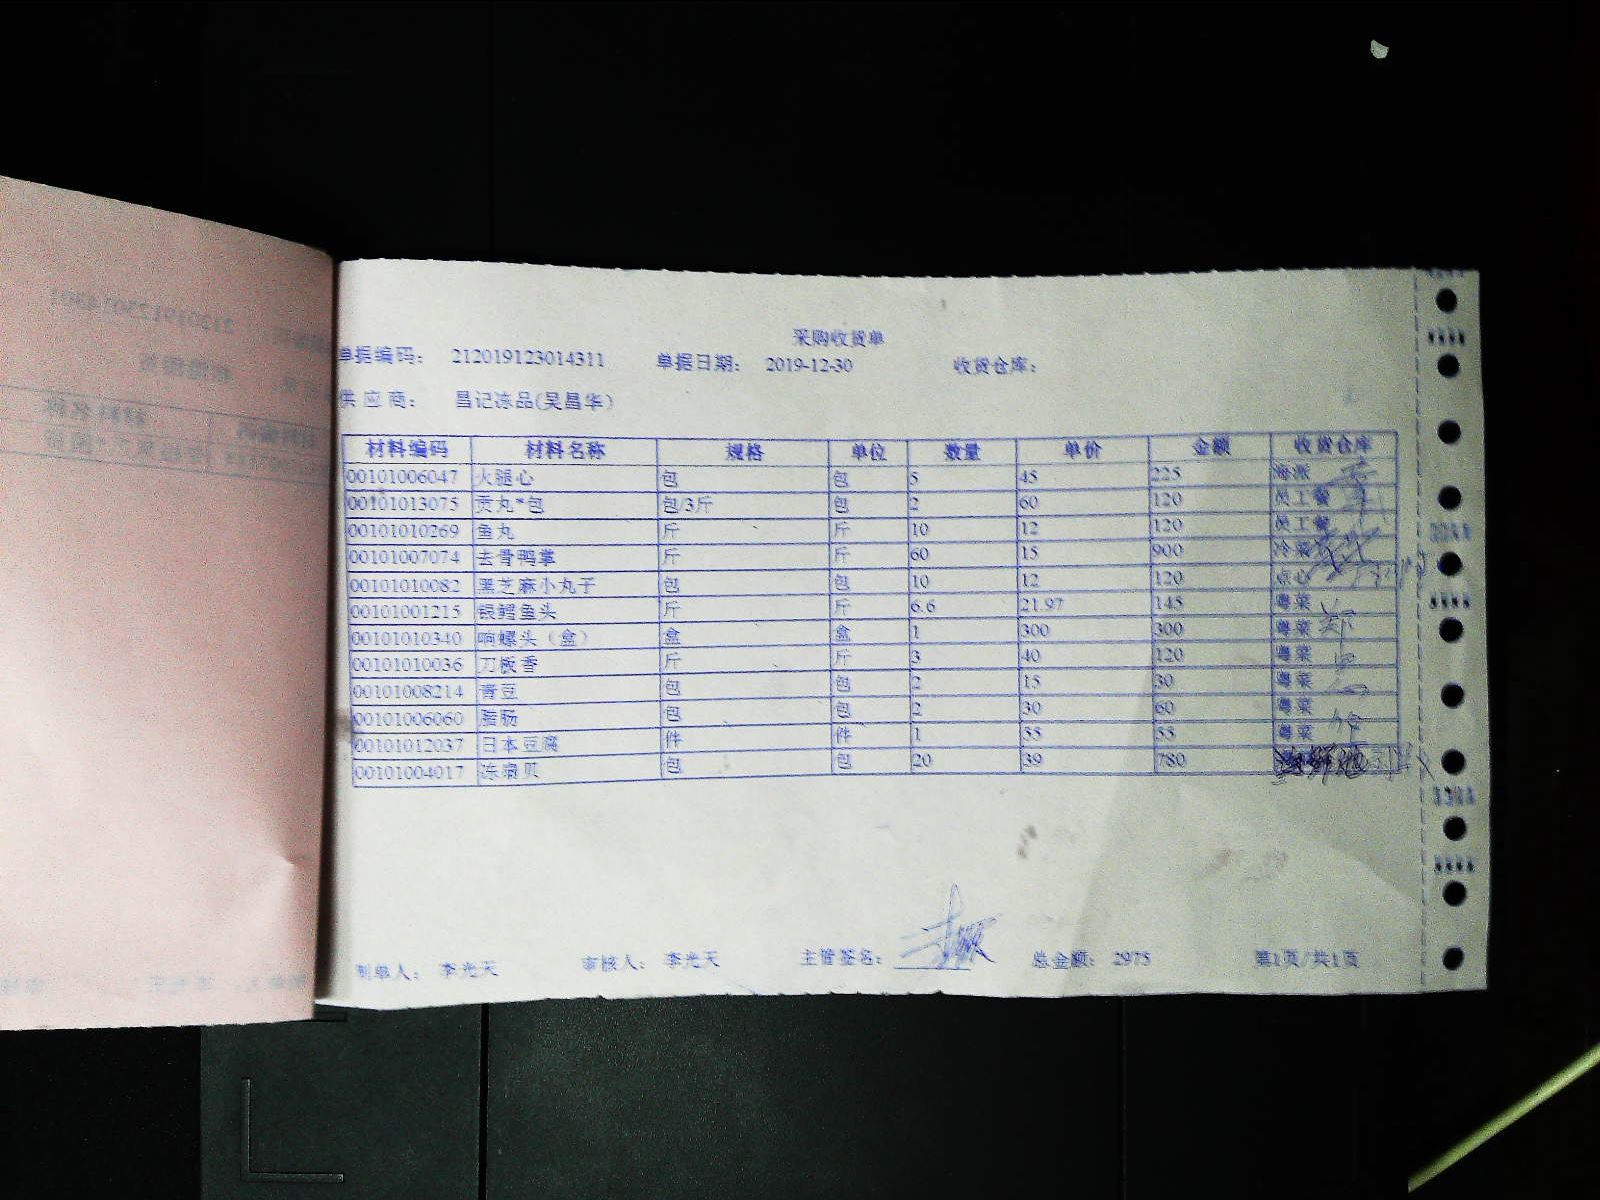 采购收货单
单据编码： 212019123014311 单据日期： 2019-12-30 收货仓库：
供 应 商： 昌记冻品(吴昌华)
材料编码 材料名称 规格 单位 数量 单价 金额 收货仓库
00101006047 火腿心 包 包 5 45 225 海派
00101013075 贡丸*包 包/3斤 包 2 60 120 员工餐
00101010269 鱼丸 斤 斤 10 12 120 员工餐
00101007074 去骨鸭掌 斤 斤 60 15 900 冷菜
00101010082 黑芝麻小丸子 包 包 10 12 120 点心
00101001215 银鳕鱼头 斤 斤 6.6 21.97 145 粤菜
00101010340 响螺头（盒） 盒 盒 1 300 300 粤菜
00101010036 刀板香 斤 斤 3 40 120 粤菜
00101008214 青豆 包 包 2 15 30 粤菜
00101006060 腊肠 包 包 2 30 60 粤菜
00101012037 日本豆腐 件 件 1 55 55 粤菜
00101004017 冻扇贝 包 包 20 39 780
制单人： 李光天 审核人： 李光天 主管签名： 总金额： 2975 第1页/共1页